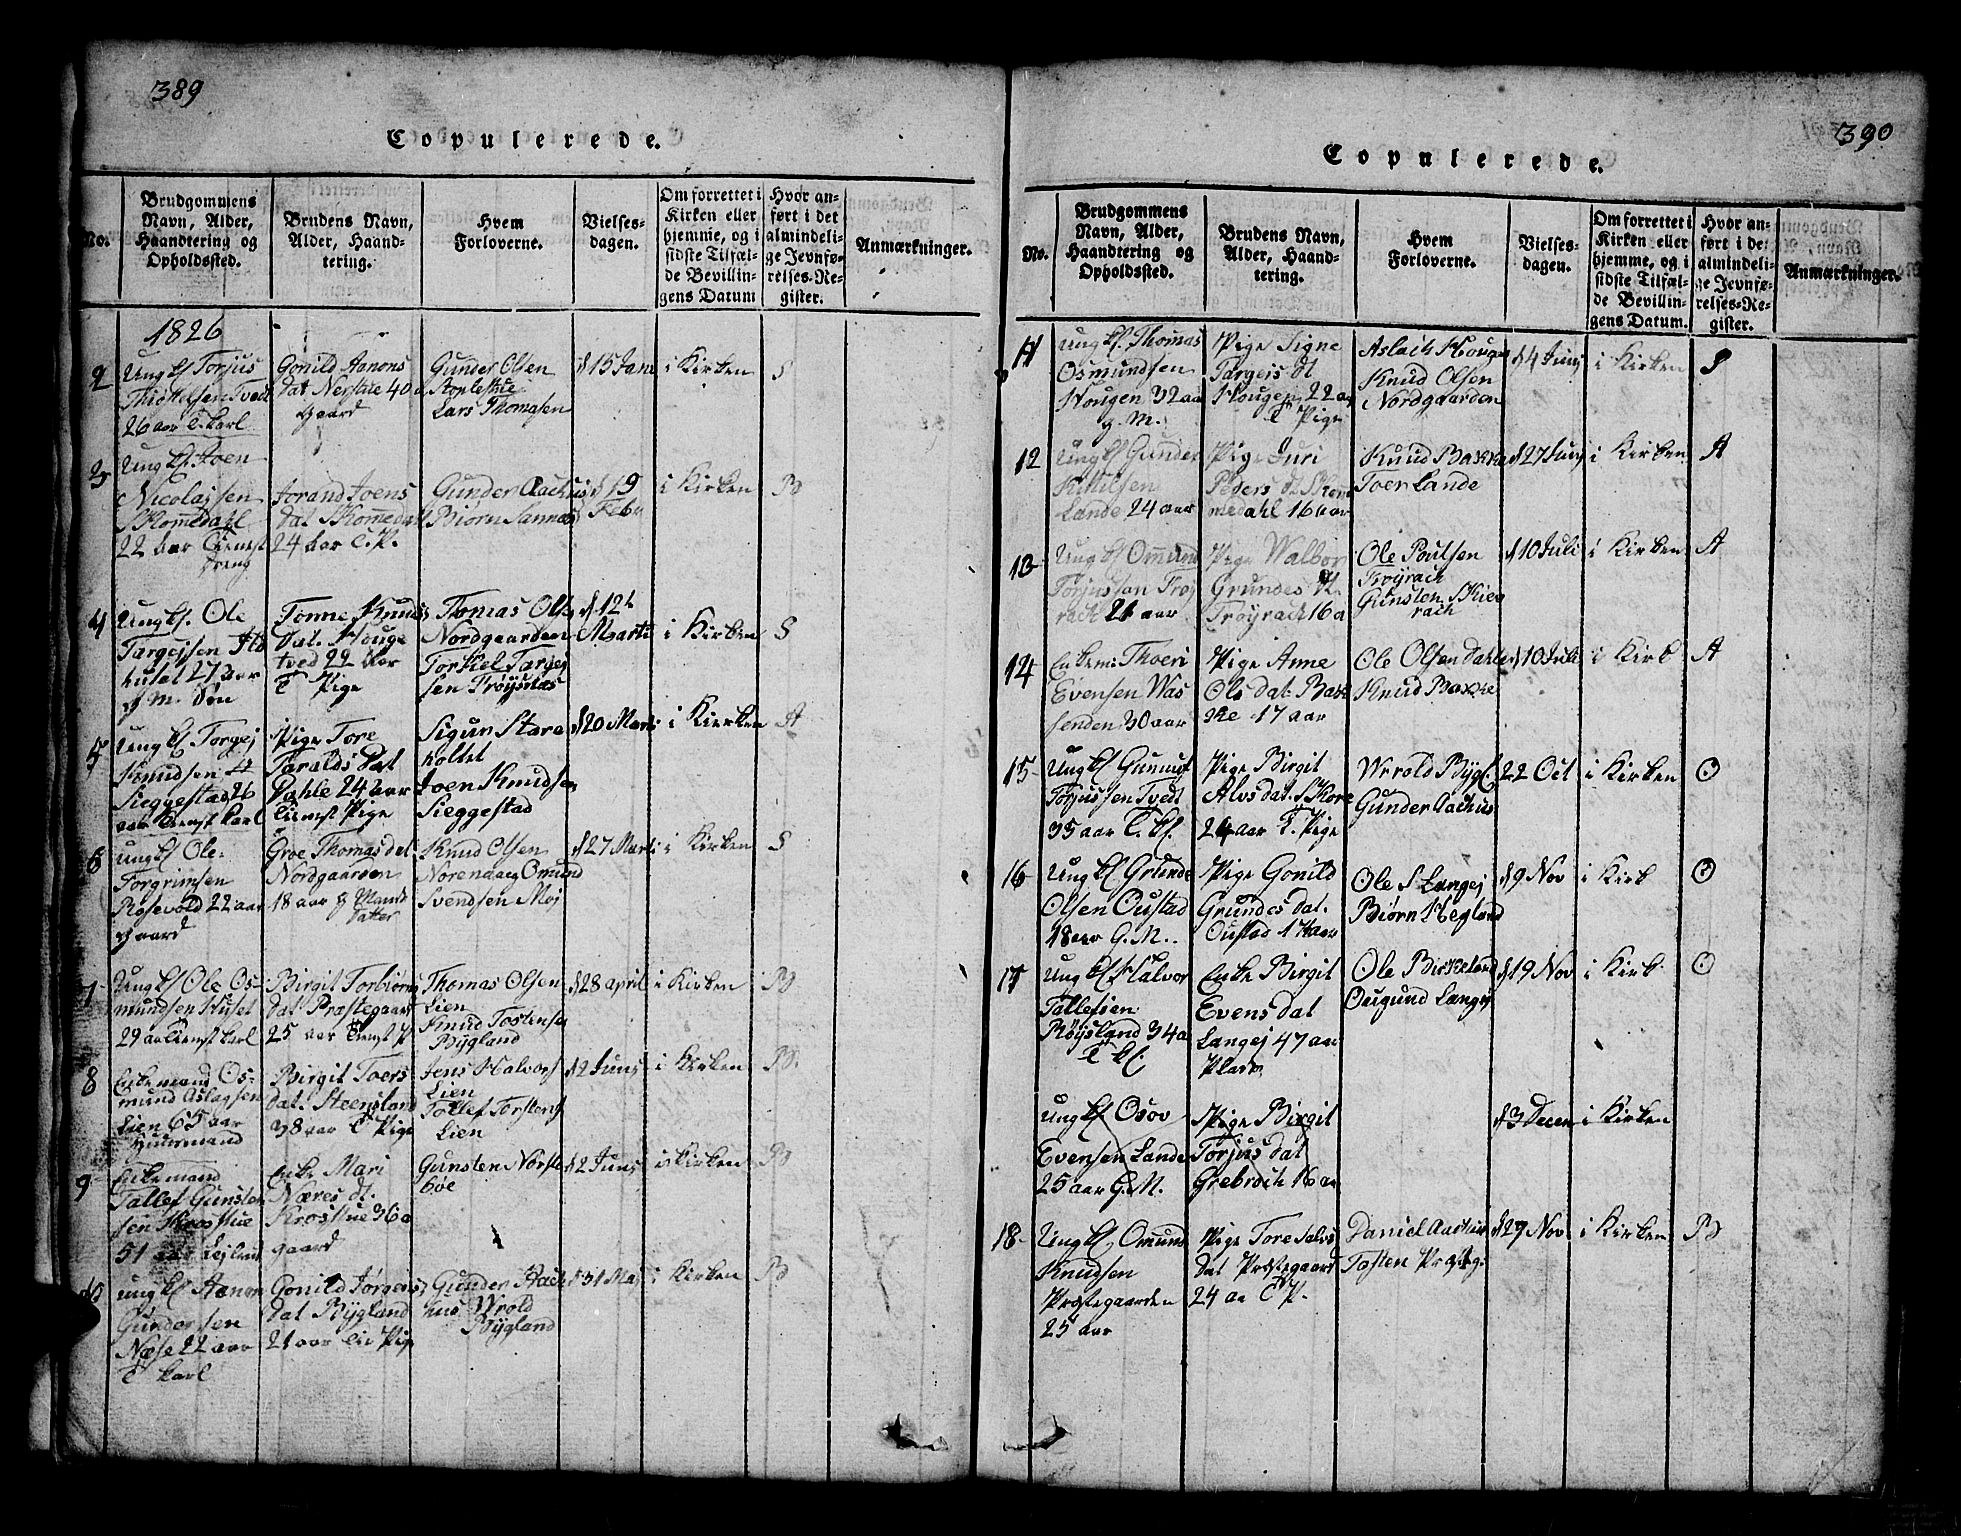 389
Copulerede.
No.
Brudgommens Navn, Alder, Haandtering og Opholdssted.
Brudens Navn, Alder, Haandtering.
Hvem Forloverne.
Vielsesdagen.
Om forrettet i Kirken eller hjemme, og i sidste Tilfælde Bevillingens Datum
Hvor anført i det almindelige Jevnførelses-Register.
Anmærkninger.
1826
2
Ung kl Torjus
Tvedt
26 aar T. karl
Gonild Aanons
dat Nerstue 40 a
gaard
Gunder Olsen
Stoplestue
Lars Thomasen
d 15 Janu
i Kirken
S
3
Ung kl. Joen
Nicolajsen
Skomedahl
22 aar Tienest
dreng
Jorand Joens
dat Skomedahl
24 aar T. P.
Gunder Aachus
Biorn Sannes
d 19
Feb
i Kirken
Pd
4
Ung kl. Ole
Targejsen
27 aar
g M. Søn
Tonne Knuds
Dat. Houge
tved 22 aar
T Pige
Tomas Ols
Nordgaarden
Torkel Targej
sen Trøysnæs
d 12t
Martii
i Kirken
S
5
Ung kl Torgej
Knudsen
Sieggestad 26
aar Tienest karl
Pige Tore
Taralds Dat
Dahle 24 aar
tienest Pige
Sigur Stara
holtet
Joen Knudsen
Sieggestad
d 20 Marti
i Kierken
A
6
ung kl Ole
Torgrimsen
Rosevold 22 aar
gaard
Groe Thomas dat
Nordgaarden
18 aar g Mands
Datter
Knud Olsen
Norenaa og Omund
Svendsen Moj
d 27 Marti
i Kirken
S
7
Ung kl Ole Os-
mundsen Huset
29 aar Tienest karl
Birgit Torbiørns
dat Præstegaar
25 aar tienest P
Thomas Olsen
Lien
Knud Tostensen
Bygland
d 28 april
i Kirken
Pd
8
Enkemand Os-
mund Aslagsen
Lien 65 aar
Huusmand
Birgit Toers
dat. Steensland
38 aar T Pige
Jens Halvors
Lien
Tollef Torstens
Lien
d 2 Junj
i Kirken
Pd.
9
Enkemand
Tallef Gunsten
sen Krosstue
51 aar Lejlend
Enke Mari
Næres dt.
Krosstue 36 a
gaard
Gunsten Norste
bøe
d 2 Junj
i Kirken
Pd
10
ung kl Aanon
Gundersen
Næse 22 aar
T karl
Gonild Jørgens
dat Bygland
21 aar tie Pige
Gunder Aack
hus Wrold
Bygland
d 31 Maj
i Kirken
Pd
390
Copulerede.
No.
Brudgommens Navn, Alder, Haandtering og Opholdssted.
Brudens Navn, Alder, Haandtering.
Hvem Forloverne.
Vielsesdagen.
Om forrettet i Kirken eller hjemme, og i sidste Tilfælde Bevillingens Datum.
Hvor anført i det almindelige Jevnførelses-Register.
Anmærkninger.
11
ung kl. Thomas
Osmundsen
Hougen 32 aa
g. M.
Pige Signe
Targeis dt
Hougen 22 aa
T Pige
Aslach Houge
Knud Olsen
Nordgaarden
d 4 Junj
i Kirken
S
12
Ung kl Gunder
Kittilsen
Lande 24 aar
Pige Juri
Peders dt Skom
medahl 16 aar
Knud Bakke
Toer Lande
d 27 Junj
i Kirken
A
13
Ung kl Omund
Torjussøn Trøj
rach 21 aar
Pige Walbor
Grundes dt.
Trøyrach 16 a
Ole Poulsen
Trøyrach
Gunsten Skie
rach
d 10 Juli
i Kirken
A
14
Enkem: Thoeri
Evensen Was
senden 30 aar
Pige Anne
Ols dat. Bak
ke 17 aar
Ole Olsen Dahle
Knud Bakke
d 10 Juli
i Kirk
A
15
Ung kl Gunuul
Torjussen Tvedt
35 aar T. kl.
Pige Birgit
Alvs dat. Skore
24 aar T. Pige
Wrold Bygl.
Gunder Aachus
22 Oct
i Kirken
O
16
Ung kl Grunde
Olsen Oustad
18 aar G. M.
Pige Gonild
Grundes dat.
Oustad 17 aar
Ole S Langej
Biørn Hegland
d 9 Nov
i Kirk
O
17
Ung kl Halvor
Tallefsen
Røysland 34 a
T kl.
Enke Birgit
Evens dat
Langej 47 aa
Plads
Ole Birkeland
Ougund Langej
d 19 Nov
i Kirk
O
Ung kl Osov
Evensen Lande
25 aar G. M.
Pige Birgit
Torjus dat
Grebroch 16 aa
d 3 Decem
i Kirken
18
Ung kl Omund
Knudsen
Præstegaarden
25 aar
Pige Tore Salvs
dat Præstegaard
24 aa T P.
Daniel Aachus
Tosten Præsteg.
d 27 Nov
i Kirken
Pd